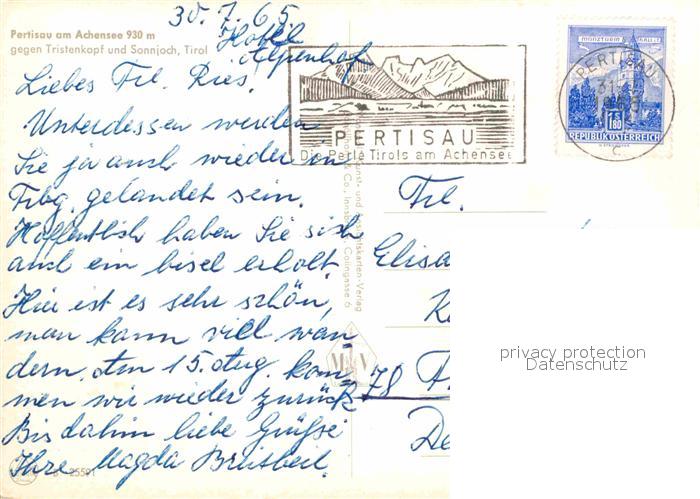 30. 7. 65
Pertisau am Achensee 930 m
gegen Tristenkopf und Sonnjoch, Tirol
Hotel
Alpenhof
Liebes Frl. Ries!
Unterdessen werden
Sie ja auch wieder in
Frbg. gelandet sein.
Hoffentlich haben Sie sich
auch ein bisel erholt.
Hier ist es sehr schön,
man kann viel wan-
dern. Am 15. Aug. kom-
men wir wieder zurück
Bis dahin liebe Grüße
Ihre Magda
25591
PERTISAU
Die Perle Tirols am Achensee
MÜNZTURM HALL i. T.
PERTISAU
1.80
REPUBLIK ÖSTERREICH
Frl.
Elisa
78
privacy protection
Datenschutz